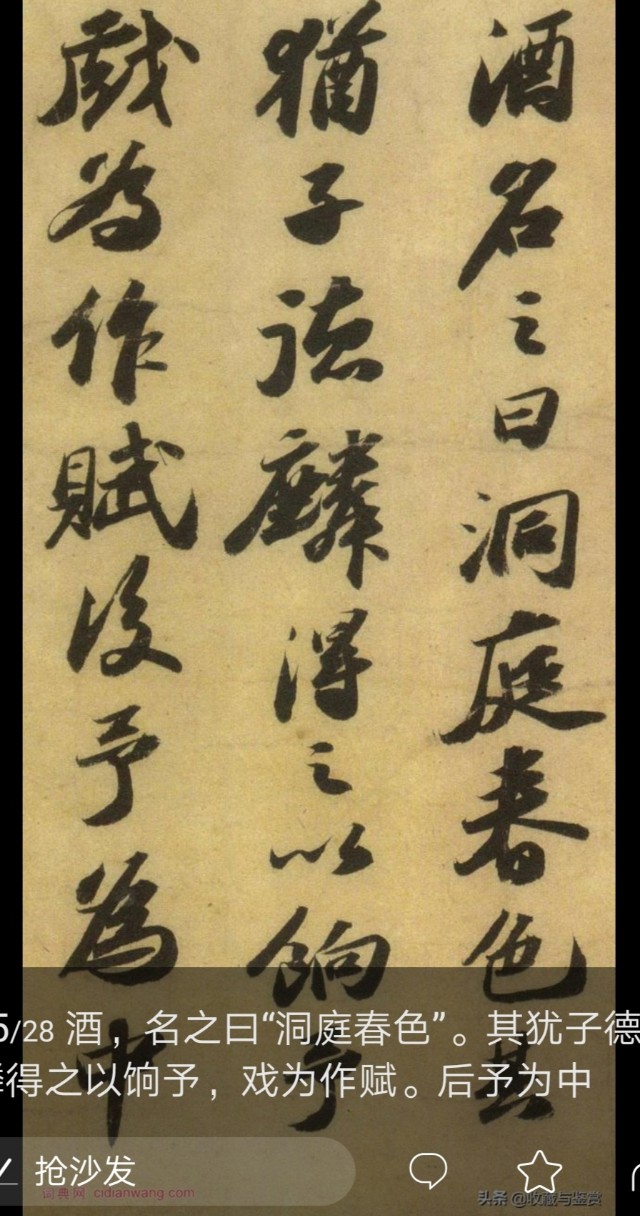 酒名之曰洞庭春色其
猶子德麟得之以餉予
戲為作賦後予為中
5/28 酒，名之曰“洞庭春色”。其犹子德
麟得之以饷予，戏为作赋。后予为中
抢沙发
词典网 cidianwang.com
头条 @收藏与鉴赏